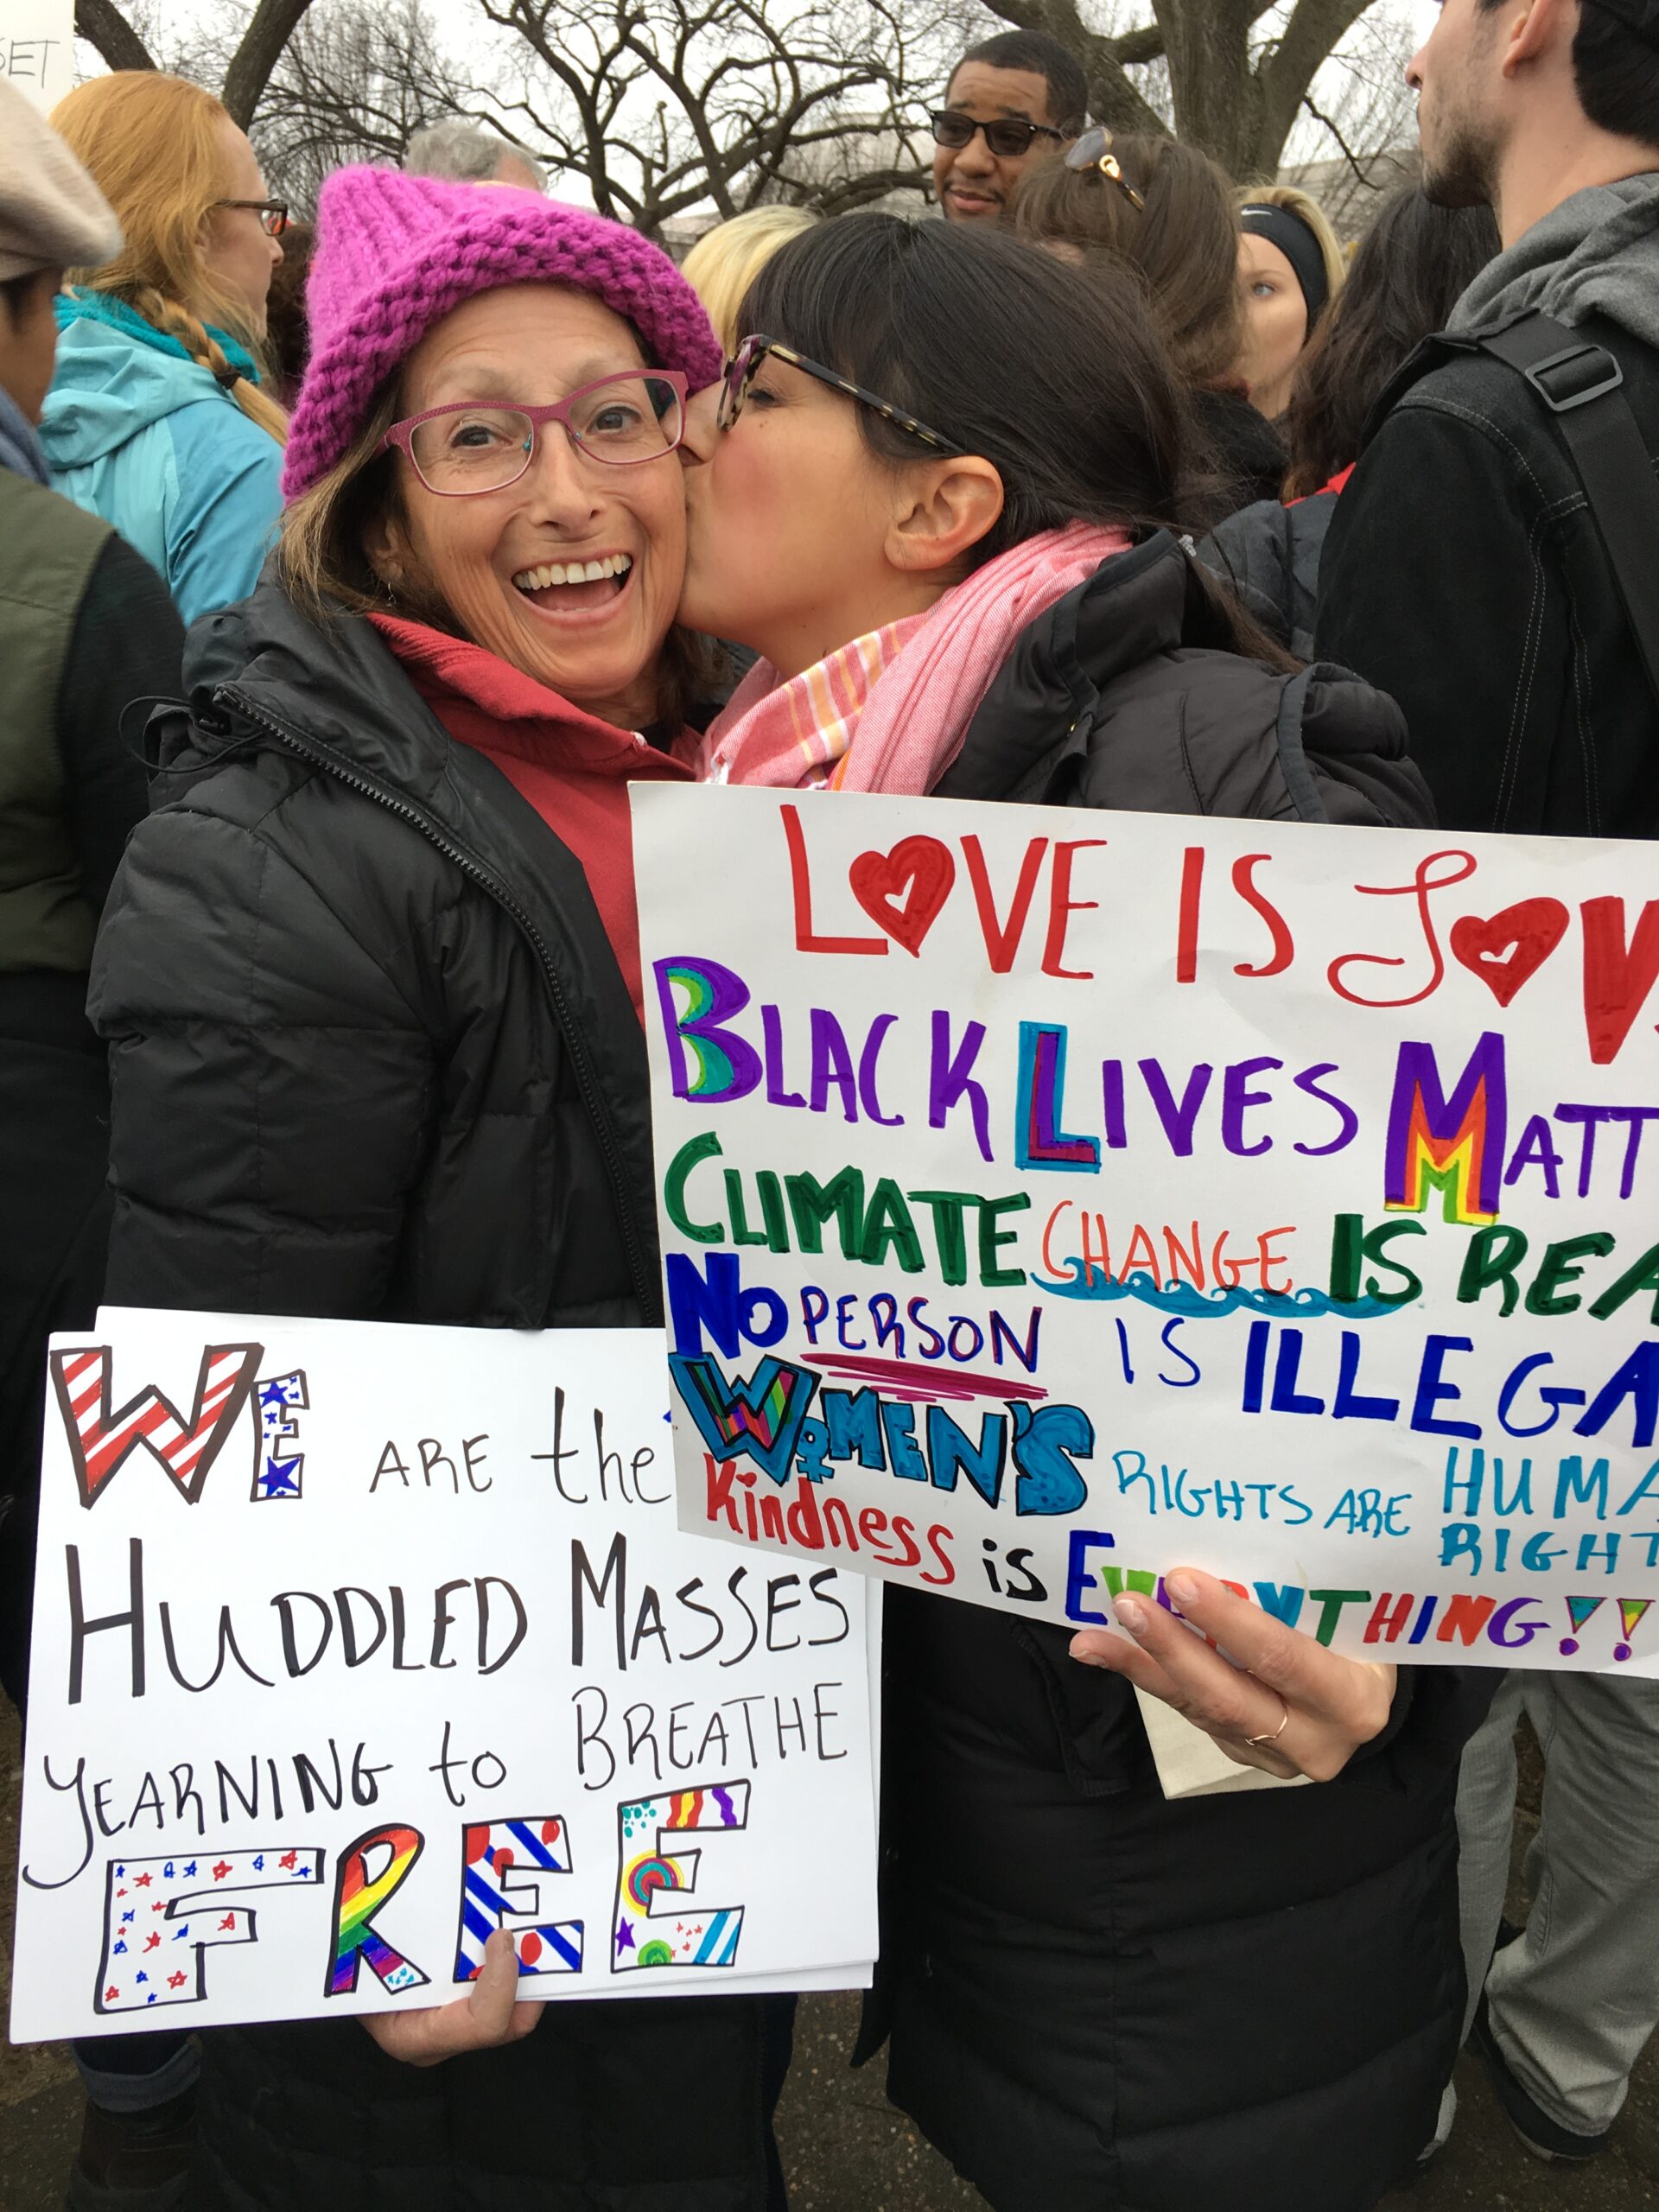 SET
LOVE IS LOV
BLACK LIVES MATT
CLIMATE CHANGE IS REA
NO PERSON IS ILLEGA
WOMEN'S RIGHTS ARE HUMA
RIGHT
Kindness is EVERYTHING!!
WE ARE the
HUDDLED MASSES
YEARNING to BREATHE
FREE